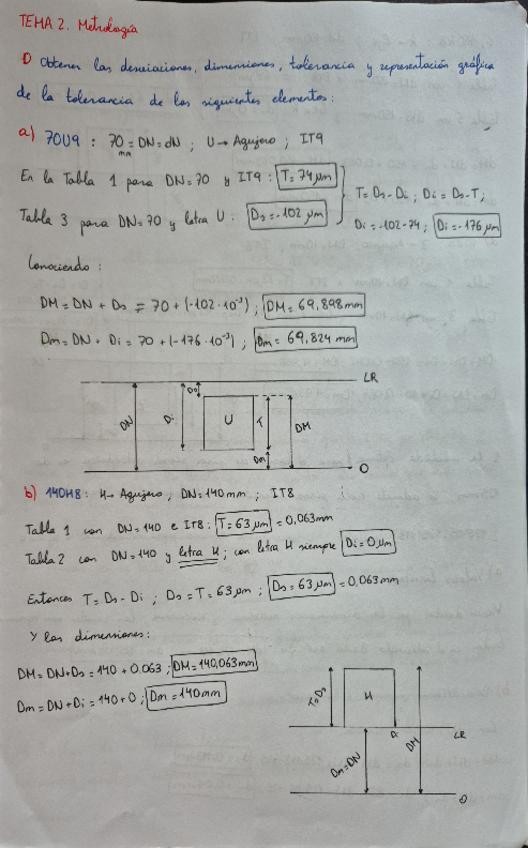 TEMA 2. Metrología
1) Obtener las desviaciones, dimensiones, tolerancia y representación gráfica
de la tolerancia de los siguientes elementos:
a) 70U9 : 70 = DN = dN ; U → Agujero ; IT9
mm
En la Tabla 1 para DN=70 y IT9 : T=74 μm
Tabla 3 para DN=70 y letra U : Ds=-102 μm
T= Ds-Di ; Di= Ds-T ;
Di=-102-74 ; Di=-176 μm
Conociendo :
DM = DN + Ds = 70 + (-102·10⁻³) ; DM= 69,898mm
Dm = DN + Di = 70 + (-176·10⁻³) ; Dm = 69,824 mm
LR
DN
Di
Ds
U
T
DM
Dm
0
b) 140H8 : H → Agujero, DN=140mm ; IT8
Tabla 1 con DN=140 e IT8 : T=63 μm = 0,063mm
Tabla 2 con DN=140 y letra H ; con letra H siempre Di=0 μm
Entonces T= Ds-Di ; Ds=T=63 μm ; Ds=63 μm = 0,063mm
Y las dimensiones:
DM= DN+Ds = 140 + 0.063 ; DM=140,063mm
Dm = DN+Di = 140+0 ; Dm = 140mm
T=Ds
H
Di
LR
Dm=DN
DM
0